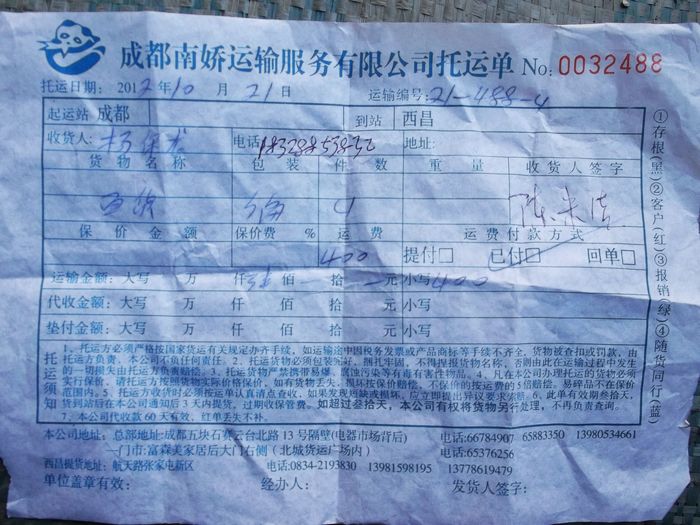 成都南娇运输服务有限公司托运单 No: 0032488
托运日期: 2012年10月21日 运输编号: 21-488-4
起运站 成都 到站 西昌
收货人: 杨 电话 地址:
货物名称 包装 件数 重量 收货人签字
4
保价金额 保价费 % 运费 运费付款方式
400 提付□ 已付□ 回单□
运输金额: 大写 万 仟 佰 拾 元 小写 400
代收金额: 大写 万 仟 佰 拾 元 小写
垫付金额: 大写 万 仟 佰 拾 元 小写
托运须知
1、托运方必须严格按国家货运有关规定办齐手续, 如运输途中因税务发票或产品商标等手续不齐全, 货物被查扣或罚款, 由
托运方负责、本公司不负任何责任。2、托运货物必须包装好、捆扎牢固, 不得捏报货物名称, 否则由此在运输过程中发生
的一切损失由托运方负责赔偿。3、托运货物严禁携带易爆、腐蚀污染等有毒有害性物品。4、凡在本公司办理托运的货物必须
实行保价, 请托运方按照货物实际价格保价, 如有货物丢失、损坏按保价赔偿, 不保价的按运费的5倍赔偿。易碎品不在保价
范围内。5、托运方收货时必须按运单认真清点查收, 如果发现短缺或损坏, 应立即提出异议要求索赔。6、此单有效期叁拾天,
货到站后在本公司通知后3天内提货, 过期收保管费。如超过叁拾天, 本公司有权将货物另行处理, 不再负责查询。
7、本公司代收款60天有效, 红单丢失不补。
本公司地址: 总部地址:成都五块石赛云台北路13号隔壁(电器市场背后) 电话:66784907 65883350 13980534661
一门市:富森美家居后大门右侧 (北城货运广场内) 电话:65376256
西昌提货地址: 航天路张家屯新区 电话:0834-2193830 13981598195 13778619479
单位盖章有效: 经办人: 发货人签字:
①存根(黑)②客户(红)③报销(绿)④随货同行(蓝)